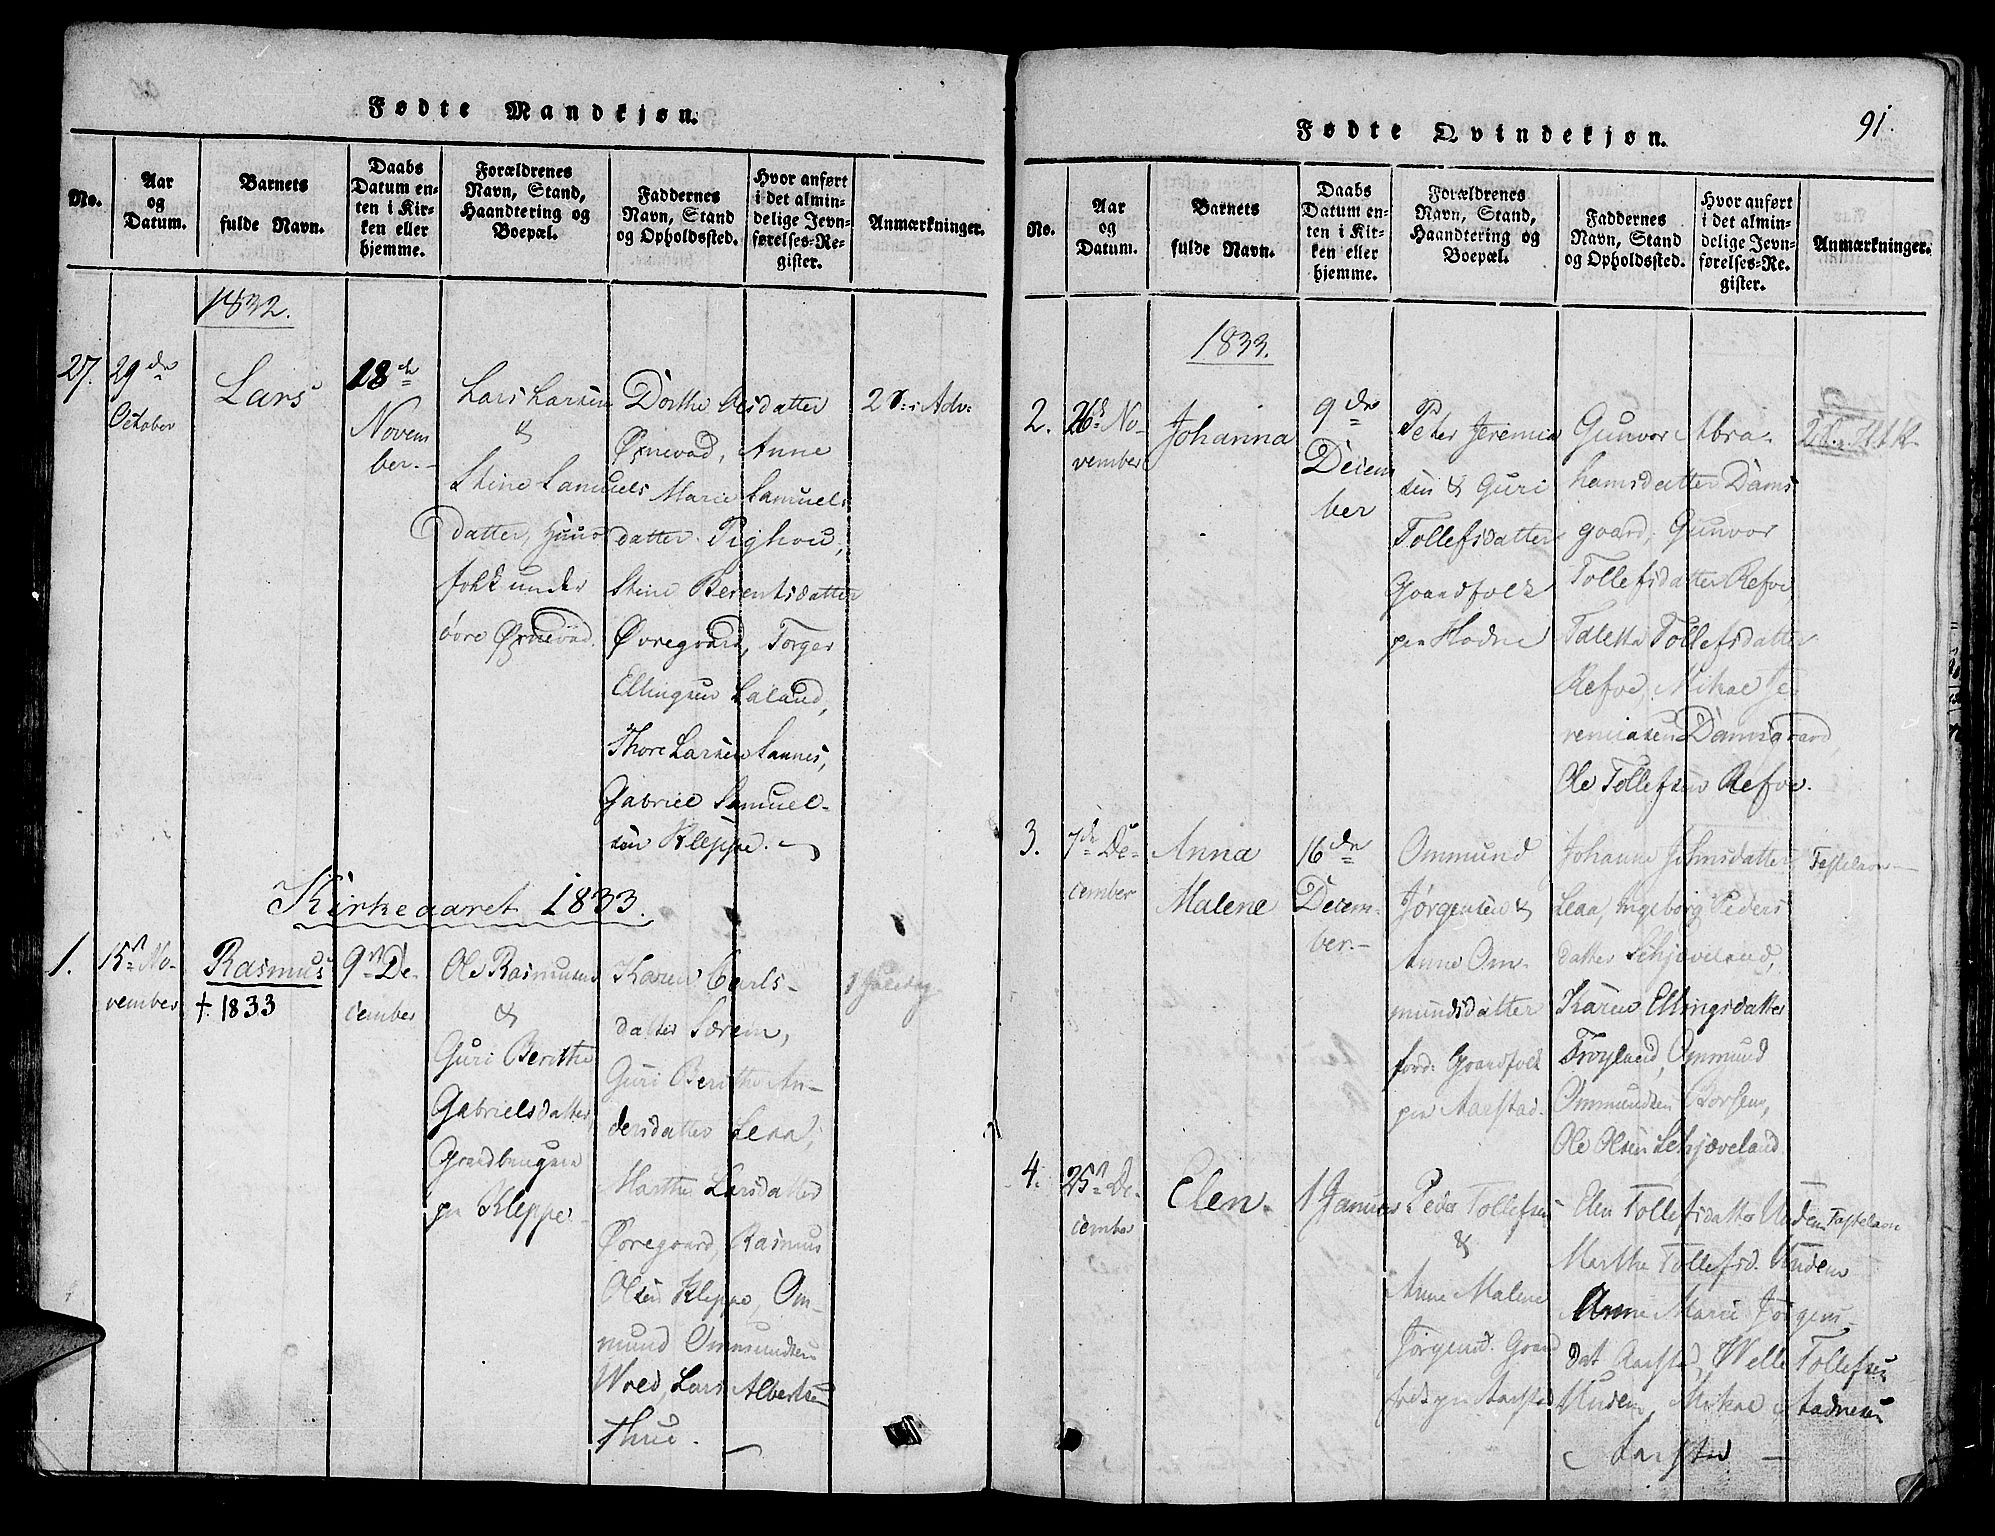 Fødte Mandkjøn.
No.
Aar
og
Datum.
Barnets
fulde Navn.
Daabs
Datum en-
ten i Kir-
ken eller
hjemme.
Forældrenes
Navn, Stand,
Haandtering og
Boepæl.
Faddernes
Navn, Stand
og Opholdssted.
Hvor anført
i det almin-
delige Jevn-
førelses-Re-
gister.
Anmærkninger.
1832.
27.
29de
October
Lars
18de
Novem
ber.-
Lars Larsen
&
Stine Samuels
datter,
folk under
øvre Øxnevad.
Dorthe
datter
Øxnevad, Anne
Marie Samuels
datter Pighou,
Stine Berentsdatter
Øvregaard, Torger
Ellingsen Laland,
Thore Larsen Sannes,
Gabriel Samuel-
sen Kleppe.
Adv:
Kirkeaaret 1833.
1.
15n No-
vember
Rasmus
† 1833
9n De-
cember
Ole Rasmusen
&
Guri Berithe
Gabrielsdatter,
paa Kleppe.
Karen Carls-
datter Særem,
Guri Berithe An-
dersdatter Leaa,
Marthe Larsdatter
Øvregaard, Rasmus
Olsen Kleppe, Om-
mund Ommundsen
Lars Albertsen
Thue.
Fødte Qvindekjøn.
91.
No.
Aar
og
Datum.
Barnets
fulde Navn.
Daabs
Datum en-
ten i Kir-
ken eller
hjemme.
Forældrenes
Navn, Stand,
Haandtering og
Boepæl.
Faddernes
Navn, Stand
og Opholdssted.
Hvor anført
i det almin-
delige Jevn-
førelses-Re-
gister.
Anmærkninger.
1833.
2.
26d No-
vember
Johanna
9de
Decem
ber
Peter Jeremia
sen & Guri
Tollefsdatter
Gaardfolk
paa Hodne
Gunvor Abra-
hamsdatter Dams
gaard, Gunvor
Tollefsdatter Refve,
Taletta Tollefsdatter
Refve, Mikal Je-
remiasen Damsgaard,
Ole Tollefsen Refve.
3.
7de De-
cember
Anna
Malene
16de
Decem-
ber.-
Ommund
Jørgensen &
Anne Om-
mundsdatter
Gaardfolk
paa Aarstad.
Johanne Johnsdatter
Leaa, Ingeborg Peders
datter Schjæveland,
Karen Ellingsdatter
Frøyland, Ommund
Ommundsen Borsem,
Ole Olsen Schjæveland.
Fastelavn
4.
25n De-
cember
Elen.
1 Januar
Peder Tollefsen
&
Anne Malene
Jørgensd. Gaard
folk paa Aarstad
Elen Tollefsdatter Undem
Marthe Tollefsd. Undem
Anne Marie Jørgens-
dat Aarstad, Welle Tollefsen
Undem, Mikal Aadnesen
Aarstad
Fastelavn